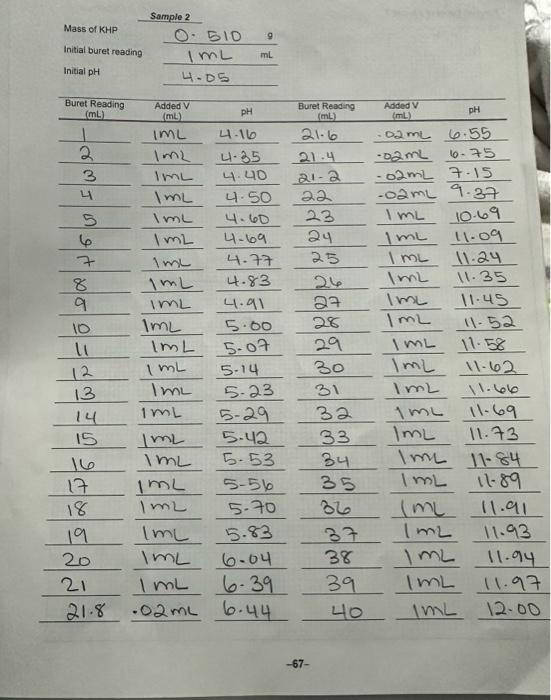 Sample 2
Mass of KHP 0.510 g
Initial buret reading 1mL mL
Initial pH 4.05
Buret Reading (mL) Added V (mL) pH Buret Reading (mL) Added V (mL) pH
1 1mL 4.16 21.6 .02mL 6.55
2 1mL 4.35 21.4 .02mL 6.75
3 1mL 4.40 21.2 .02mL 7.15
4 1mL 4.50 22 .02mL 9.37
5 1mL 4.60 23 1mL 10.69
6 1mL 4.69 24 1mL 11.09
7 1mL 4.77 25 1mL 11.24
8 1mL 4.83 26 1mL 11.35
9 1mL 4.91 27 1mL 11.45
10 1mL 5.00 28 1mL 11.52
11 1mL 5.07 29 1mL 11.58
12 1mL 5.14 30 1mL 11.62
13 1mL 5.23 31 1mL 11.66
14 1mL 5.29 32 1mL 11.69
15 1mL 5.42 33 1mL 11.73
16 1mL 5.53 34 1mL 11.84
17 1mL 5.56 35 1mL 11.89
18 1mL 5.70 36 1mL 11.91
19 1mL 5.83 37 1mL 11.93
20 1mL 6.04 38 1mL 11.94
21 1mL 6.39 39 1mL 11.97
21.8 .02mL 6.44 40 1mL 12.00
-67-